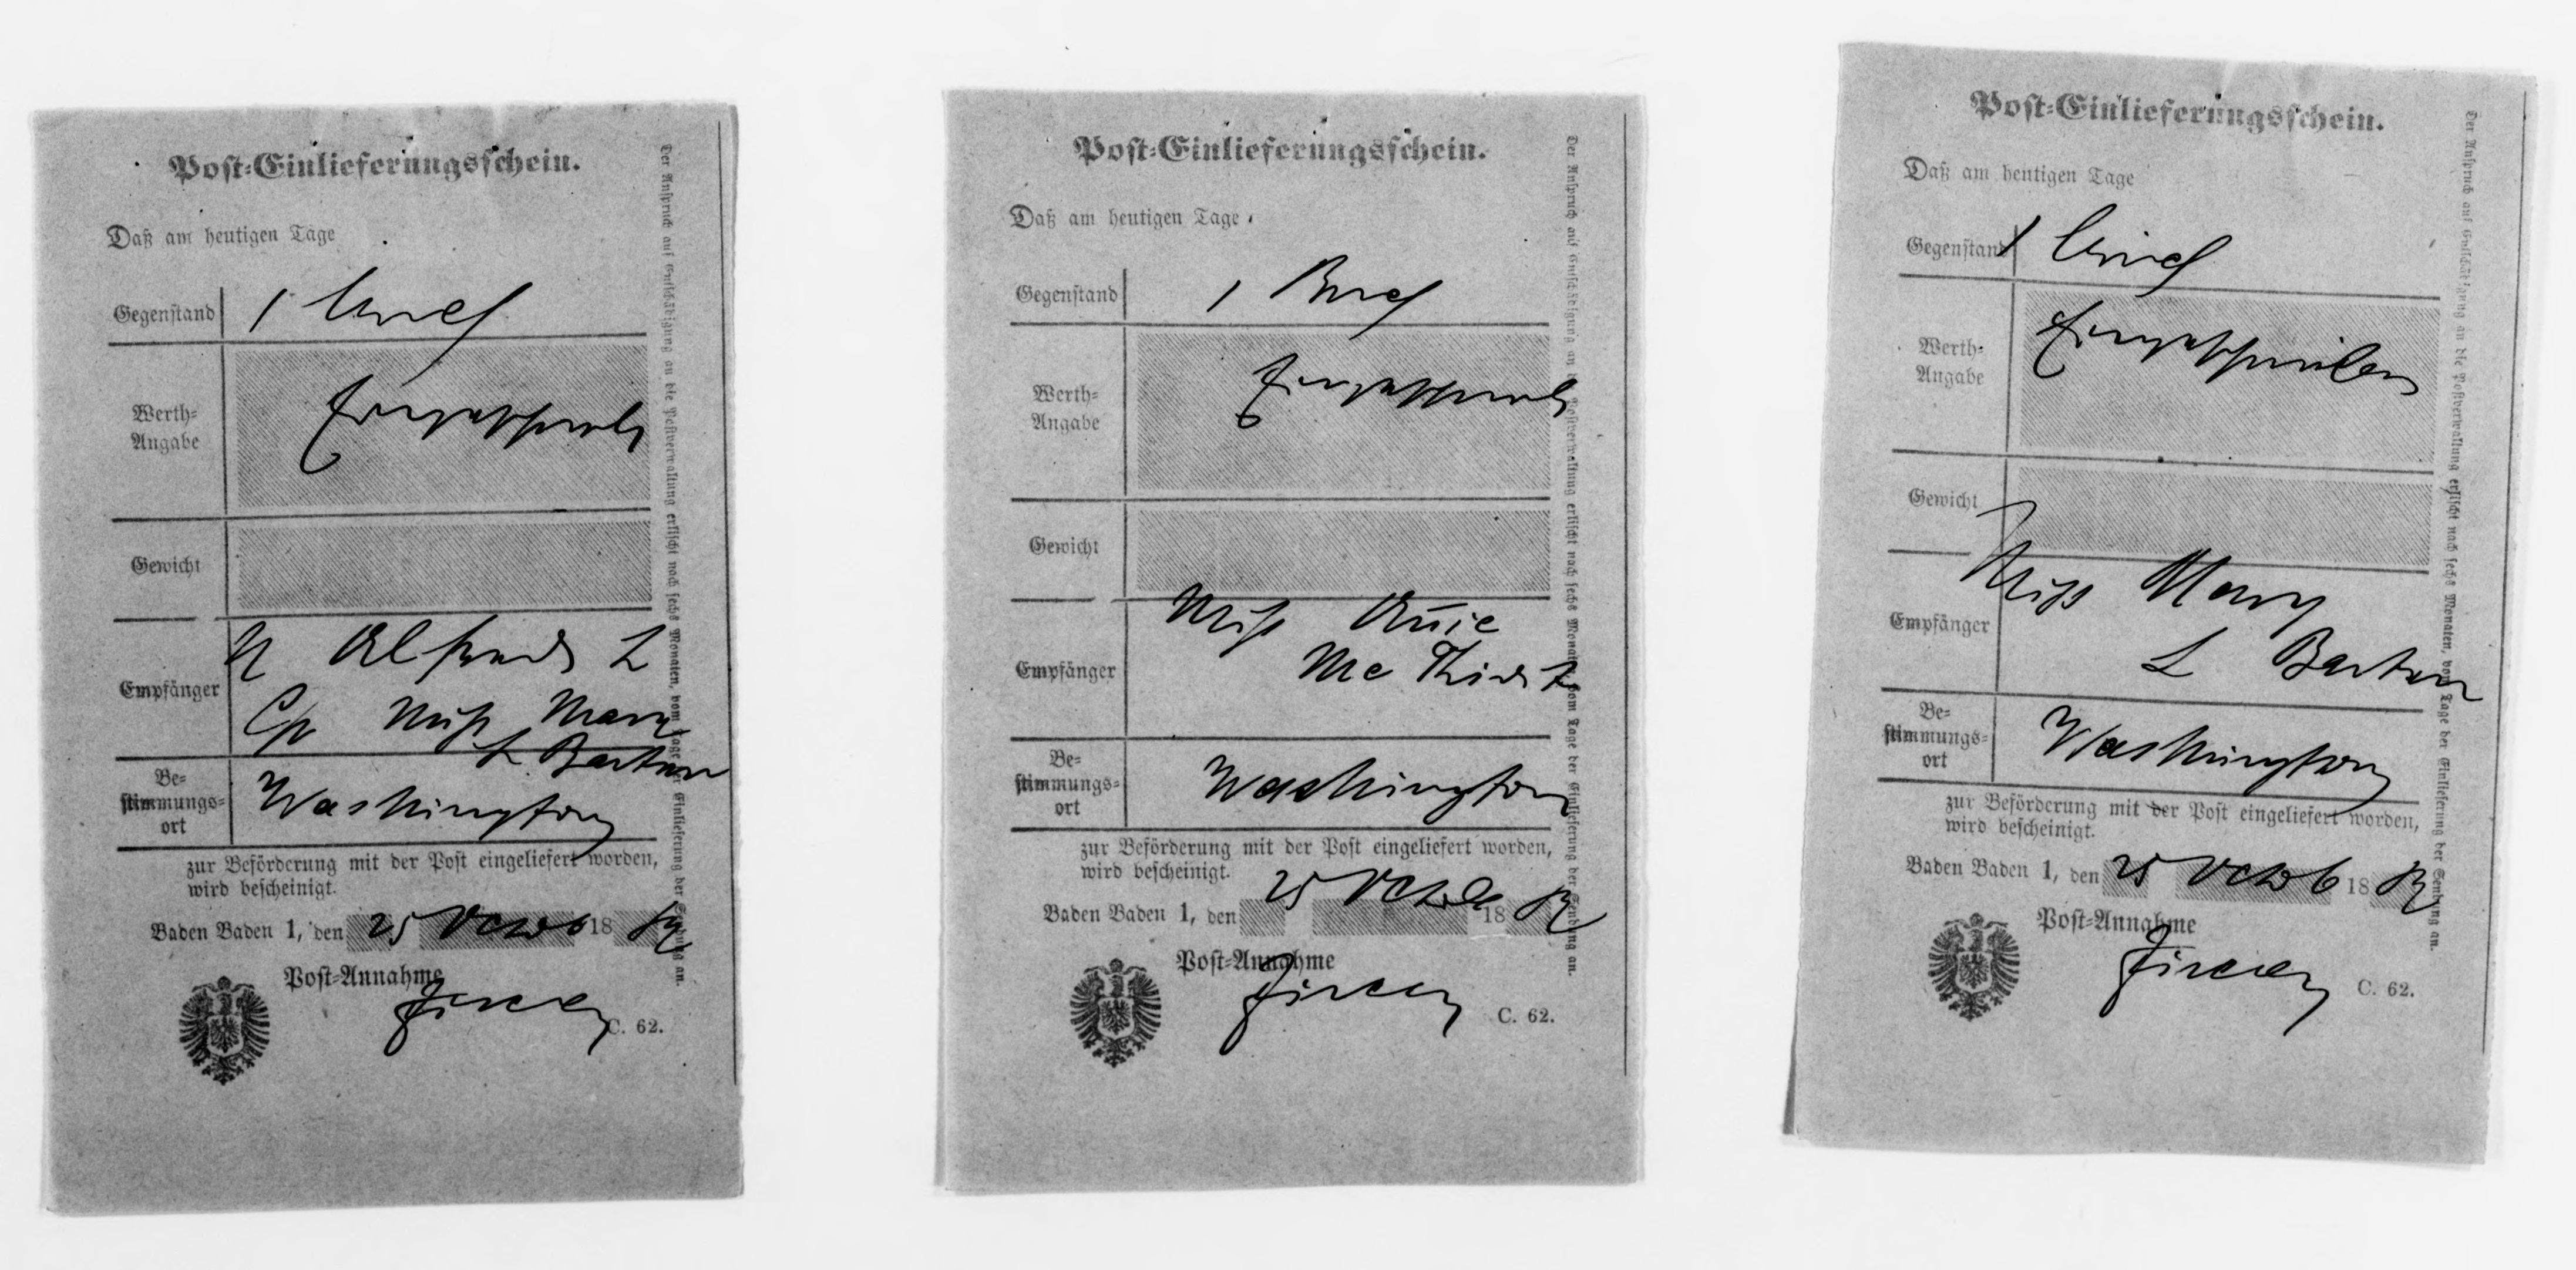 Post-Einlieferungsschein.
Daß am heutigen Tage
Gegenstand
1 Brief
Werth-
Angabe
Eingeschrieben
Gewicht
Empfänger
Miss Mary
L Barton
Be-
stimmungs-
ort
Washington
zur Beförderung mit der Post eingeliefert worden,
wird bescheinigt.
Baden Baden 1, den 25 Octob 1887
Post-Annahme
C. 62.
Der Anspruch auf Entschädigung an die Postverwaltung erlischt nach sechs Monaten, vom Tage der Einlieferung der Sendung an.
Post-Einlieferungsschein.
Daß am heutigen Tage
Gegenstand
1 Brief
Werth-
Angabe
Eingeschrieben
Gewicht
Empfänger
Miss
Mc
Be-
stimmungs-
ort
Washington
zur Beförderung mit der Post eingeliefert worden,
wird bescheinigt.
Baden Baden 1, den 25 Octob 1887
Post-Annahme
C. 62.
Der Anspruch auf Entschädigung an die Postverwaltung erlischt nach sechs Monaten, vom Tage der Einlieferung der Sendung an.
Post-Einlieferungsschein.
Daß am heutigen Tage
Gegenstand
1 Brief
Werth-
Angabe
Eingeschrieben
Gewicht
Empfänger
L
Miss Mary
L Barton
Be-
stimmungs-
ort
Washington
zur Beförderung mit der Post eingeliefert worden,
wird bescheinigt.
Baden Baden 1, den 25 Octob 1887
Post-Annahme
C. 62.
Der Anspruch auf Entschädigung an die Postverwaltung erlischt nach sechs Monaten, vom Tage der Einlieferung der Sendung an.